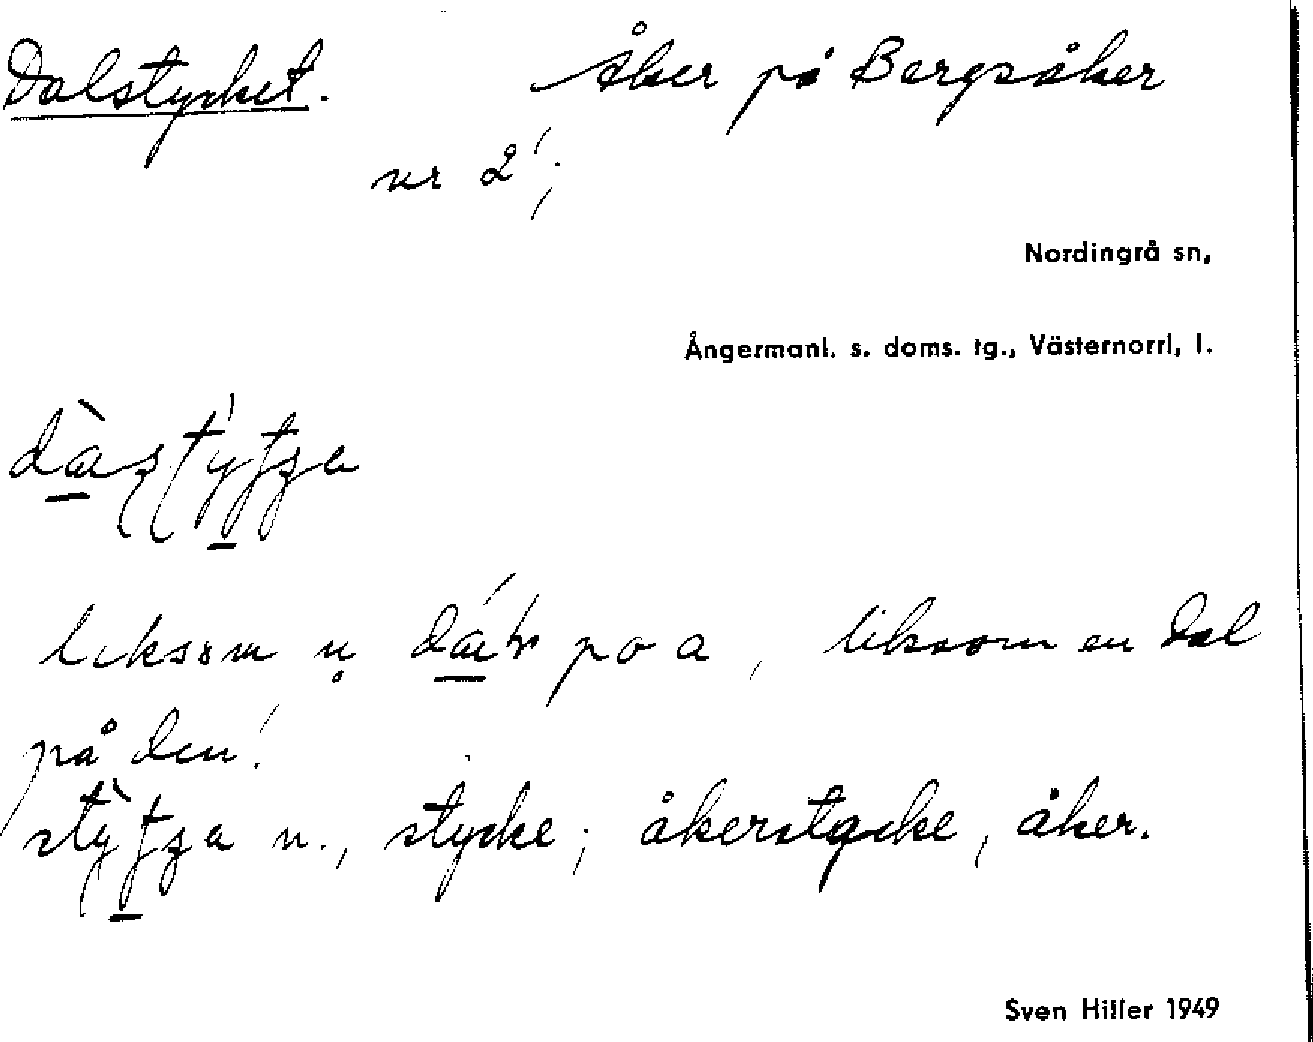 Dalstycket. Åker på Bergsåker
nr 2!;
Nordingrå sn,
Ångermanl. s. doms. tg., Västernorrl, l.
liksom po a, liksom en dal
på den!
n., stycke; åkerstycke, åker.
Sven Hiller 1949